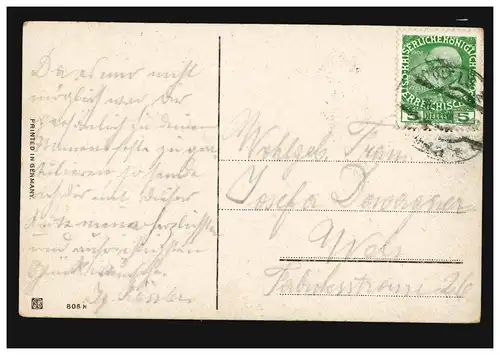 Da es mir nicht
möglich war dir
persönlich zu deinem
Namensfeste zu gra-
tulieren so sende
ich dir mit dieser
Karte meine herzlichsten
und aufrichtigsten
Glückwünsche.
PRINTED IN GERMANY.
606 K
KAISERLICHE KÖNIGLICHE
ÖSTERREICHISCHE
5 5
Wohlgeb. Frau
Josefa
Wels